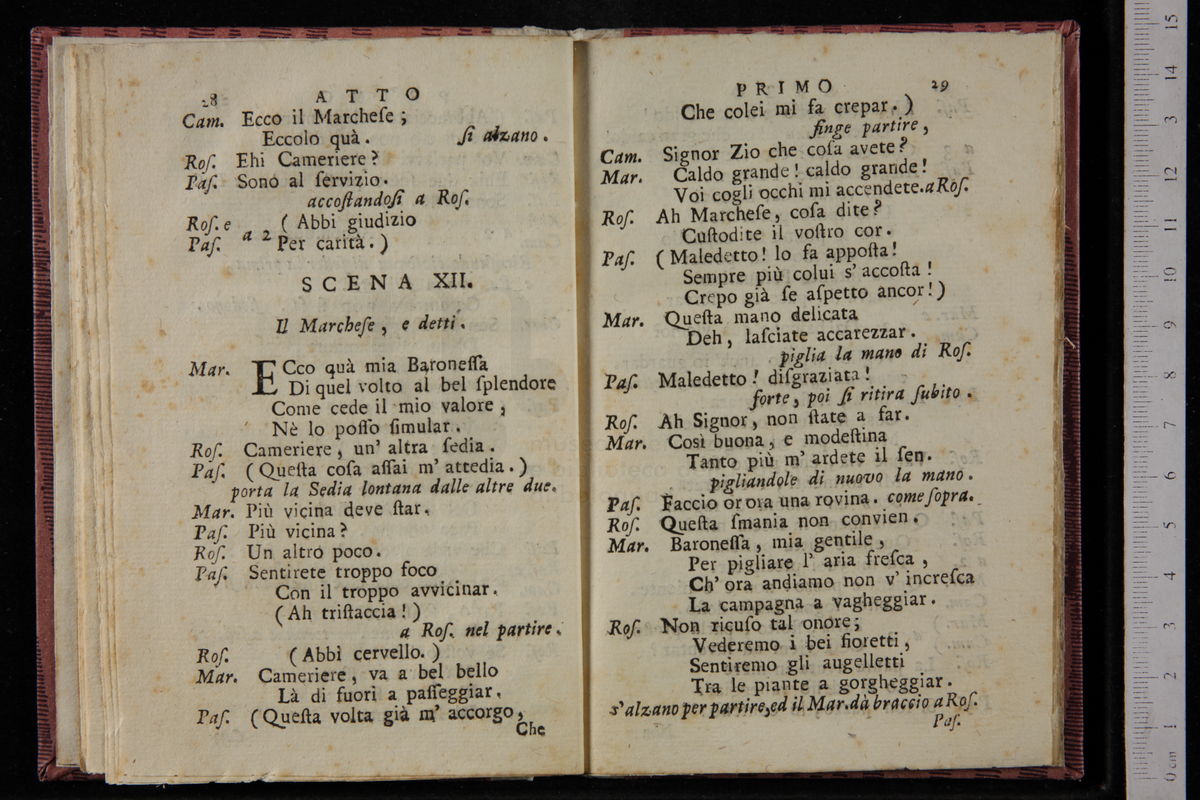 28 ATTO
Cam. Ecco il Marcheſe ;
Eccolo quà. ſi alzano .
Roſ. Ehi Cameriere ?
Paſ. Sono al ſervizio .
accoſtandoſi a Roſ.
Roſ. e ( Abbi giudizio
Paſ. a 2 Per carità . )
SCENA XII.
Il Marcheſe , e detti .
Mar. ECco quà mia Baroneſſa
Di quel volto al bel ſplendore
Come cede il mio valore ,
Nè lo poſſo ſimular .
Roſ. Cameriere , un' altra ſedia .
Paſ. ( Queſta coſa aſſai m' attedia . )
porta la Sedia lontana dalle altre due.
Mar. Più vicina deve ſtar .
Paſ. Più vicina ?
Roſ. Un altro poco .
Paſ. Sentirete troppo foco
Con il troppo avvicinar .
( Ah triſtaccia ! )
a Roſ. nel partire .
Roſ. ( Abbi cervello . )
Mar. Cameriere , va a bel bello
Là di fuori a paſſeggiar .
Paſ. ( Queſta volta già m' accorgo ,
Che
PRIMO 29
Che colei mi fa crepar . )
finge partire ,
Cam. Signor Zio che coſa avete ?
Mar. Caldo grande ! caldo grande !
Voi cogli occhi mi accendete. a Roſ.
Roſ. Ah Marcheſe , coſa dite ?
Cuſtodite il voſtro cor .
Paſ. ( Maledetto ! lo fa appoſta !
Sempre più colui s' accoſta !
Crepo già ſe aſpetto ancor ! )
Mar. Queſta mano delicata
Deh , laſciate accarezzar .
piglia la mano di Roſ.
Paſ. Maledetto ! diſgraziata !
forte , poi ſi ritira ſubito .
Roſ. Ah Signor , non ſtate a far .
Mar. Così buona , e modeſtina
Tanto più m' ardete il ſen .
pigliandole di nuovo la mano .
Paſ. Faccio or ora una rovina . come ſopra .
Roſ. Queſta ſmania non convien .
Mar. Baroneſſa , mia gentile ,
Per pigliare l' aria freſca ,
Ch' ora andiamo non v' increſca
La campagna a vagheggiar .
Roſ. Non ricuſo tal onore ;
Vederemo i bei fioretti ,
Sentiremo gli augelletti
Tra le piante a gorgheggiar .
s' alzano per partire , ed il Mar. dà braccio a Roſ.
Paſ.
0 cm 1 2 3 4 5 6 7 8 9 10 11 12 13 14 15